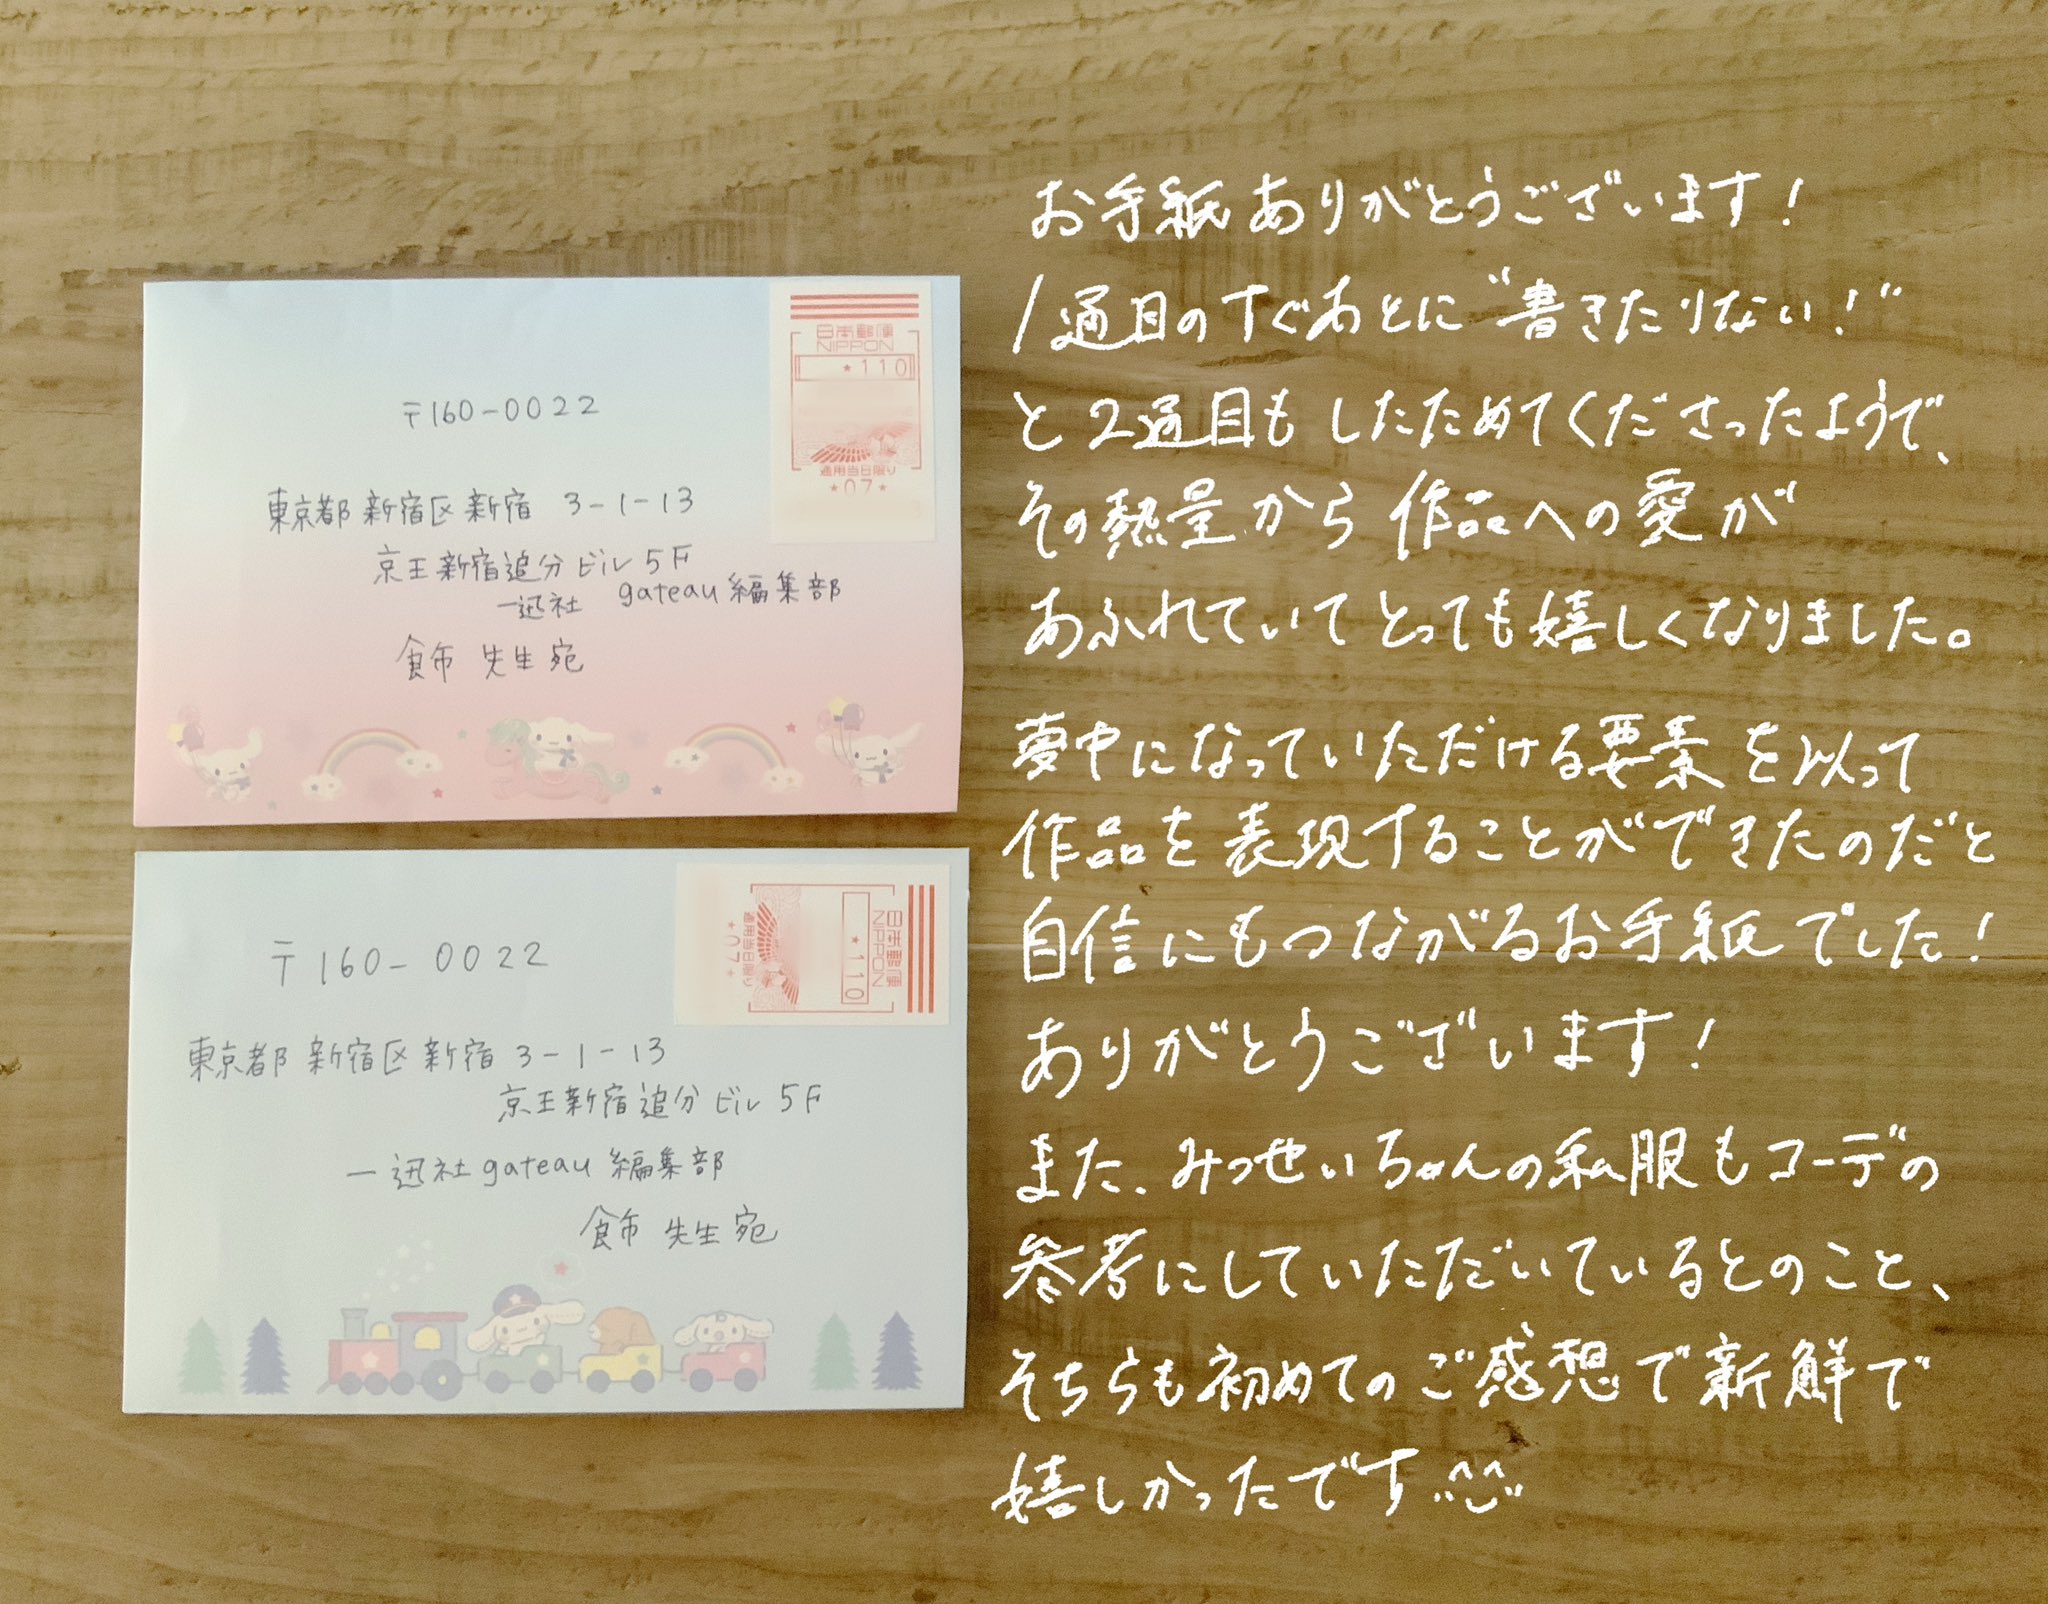 〒160-0022
東京都新宿区新宿 3-1-13
京王新宿追分ビル5F
一迅社 gateau編集部
飾 先生宛
日本郵便
NIPPON
*110
適用当日限り
*07*
〒160-0022
東京都新宿区新宿3-1-13
京王新宿追分ビル5F
一迅社gateau編集部
飾 先生宛
日本郵便
NIPPON
*110
適用当日限り
*07*
お手紙ありがとうございます!
1通目のすぐあとに"書きたりない!"
と2通目もしたためてくださったようで、
その熱量から作品への愛が
あふれていてとっても嬉しくなりました。
夢中になっていただける要素を以って
作品を表現することができたのだと
自信にもつながるお手紙でした!
ありがとうございます!
また、みつせいちゃんの私服もコーデの
参考にしていただいているとのこと、
そちらも初めてのご感想で新鮮で
嬉しかったです